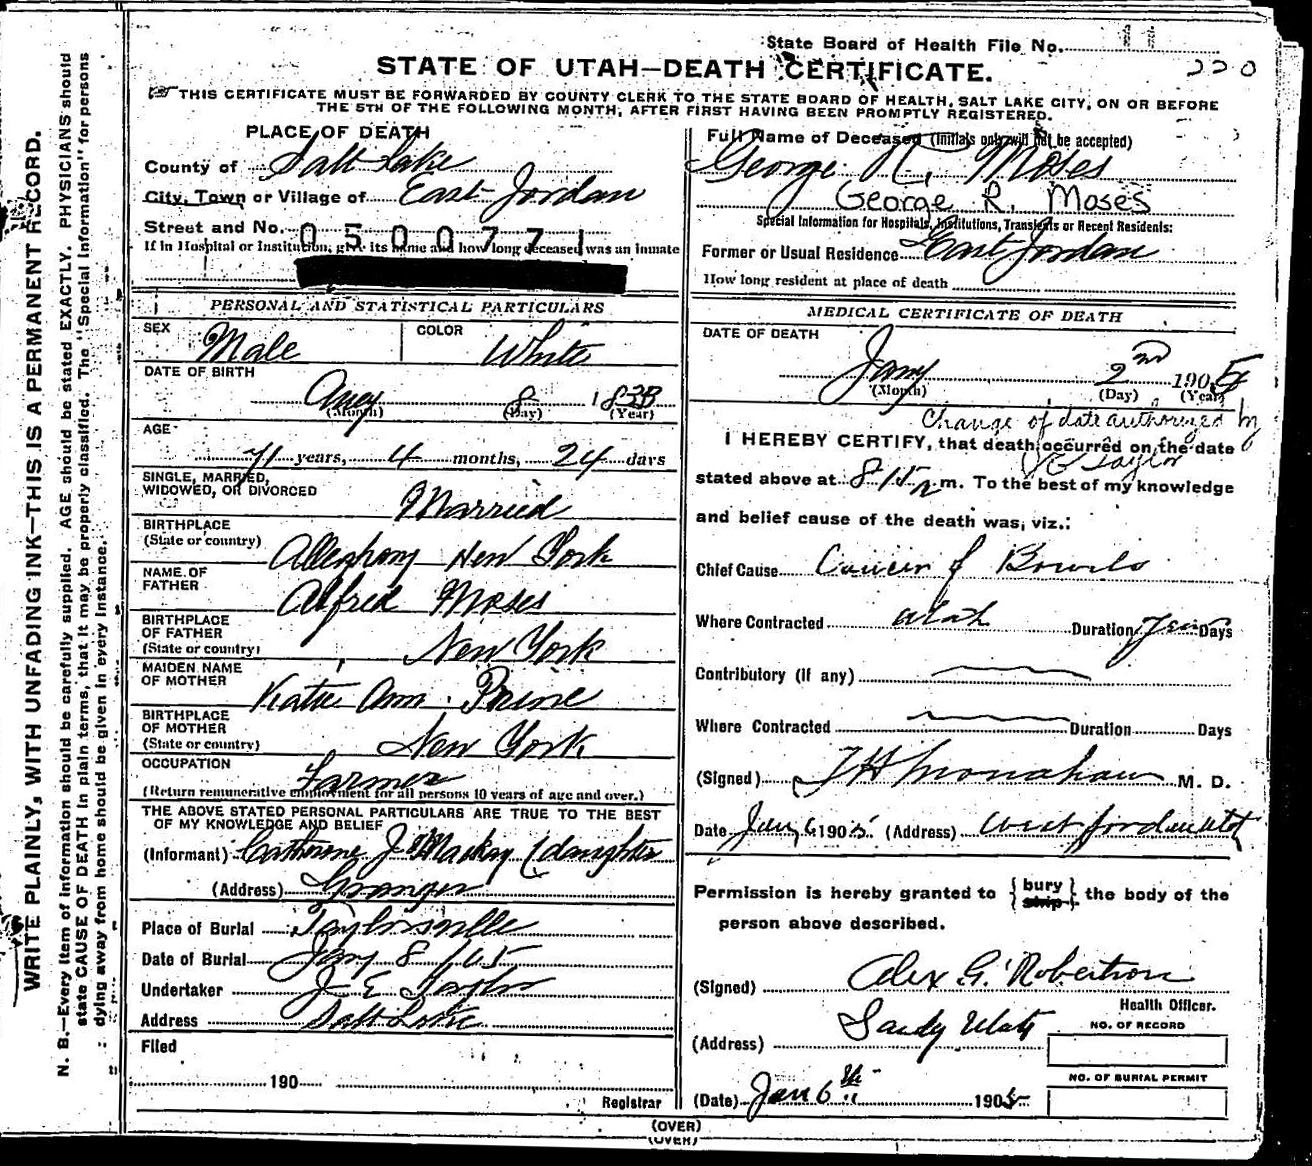 State Board of Health File No. 11
STATE OF UTAH—DEATH CERTIFICATE.
220
THIS CERTIFICATE MUST BE FORWARDED BY COUNTY CLERK TO THE STATE BOARD OF HEALTH, SALT LAKE CITY, ON OR BEFORE
THE 5TH OF THE FOLLOWING MONTH, AFTER FIRST HAVING BEEN PROMPTLY REGISTERED.
WRITE PLAINLY, WITH UNFADING INK—THIS IS A PERMANENT RECORD.
N. B.—Every item of information should be carefully supplied. AGE should be stated EXACTLY. PHYSICIANS should
state CAUSE OF DEATH in plain terms, that it may be properly classified. The "Special Information" for persons
dying away from home should be given in every instance.
PLACE OF DEATH
County of Salt Lake
City, Town or Village of East Jordan
Street and No.
0500771
If in Hospital or Institution, give its name and how long deceased was an inmate
PERSONAL AND STATISTICAL PARTICULARS
SEX Male
COLOR White
DATE OF BIRTH
Aug 8 1833
(Month) (Day) (Year)
AGE
71 years, 4 months, 24 days
SINGLE, MARRIED,
WIDOWED, OR DIVORCED
Married
BIRTHPLACE
(State or country)
Alleghany New York
NAME OF
FATHER
Alfred Moses
BIRTHPLACE
OF FATHER
(State or country)
New York
MAIDEN NAME
OF MOTHER
Katie Ann Prine
BIRTHPLACE
OF MOTHER
(State or country)
New York
OCCUPATION
Farmer
(Return remunerative employment for all persons 10 years of age and over.)
THE ABOVE STATED PERSONAL PARTICULARS ARE TRUE TO THE BEST
OF MY KNOWLEDGE AND BELIEF
(Informant) Catherine J Mackay (daughter
(Address) Granger
Place of Burial Taylorsville
Date of Burial Jany 8 /05
Undertaker J E Taylor
Address Salt Lake
Filed
190
Registrar
Full Name of Deceased (Initials only will not be accepted)
George R. Moses
George R. Moses
Special Information for Hospitals, Institutions, Transients or Recent Residents:
Former or Usual Residence East Jordan
How long resident at place of death
MEDICAL CERTIFICATE OF DEATH
DATE OF DEATH
Jany 2nd 1905
(Month) (Day) (Year)
Change of date authorized by
J E Taylor
I HEREBY CERTIFY, that death occurred on the date
stated above at 8 15 m. To the best of my knowledge
and belief cause of the death was, viz.:
Chief Cause Cancer of Bowels
Where Contracted Utah Duration Days
Contributory (if any)
Where Contracted Duration Days
(Signed) J H Monahan M. D.
Date Jany 6 1905 (Address) West Jordan Utah
Permission is hereby granted to {bury ship} the body of the
person above described.
(Signed) Alex G. Robertson
Health Officer.
(Address) Sandy Utah
NO. OF RECORD
NO. OF BURIAL PERMIT
(Date) Jan 6th 1905
(OVER)
(OVER)